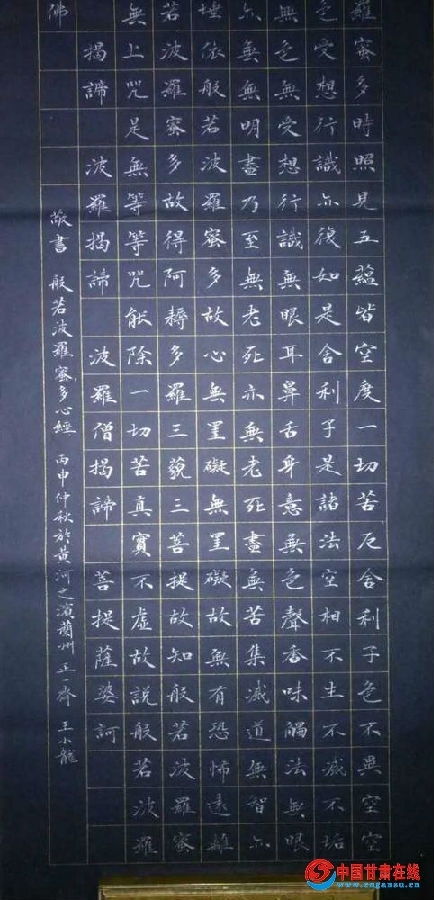 羅蜜多時照見五蘊皆空度一切苦厄舍利子色不異空空
色受想行識亦復如是舍利子是諸法空相不生不滅不垢
無色無受想行識無眼耳鼻舌身意無色聲香味觸法無眼
亦無無明盡乃至無老死亦無老死盡無苦集滅道無智亦
埵依般若波羅蜜多故心無罣礙無罣礙故無有恐怖遠離
若波羅蜜多故得阿耨多羅三藐三菩提故知般若波羅蜜
無上咒是無等等咒能除一切苦真實不虛故說般若波羅
揭諦 波羅揭諦 波羅僧揭諦 菩提薩婆訶
佛
敬書 般若波羅蜜多心經 丙申仲秋於黃河之濱蘭州正一齋 王小龍
中国甘肃在线
www.cngansu.cn